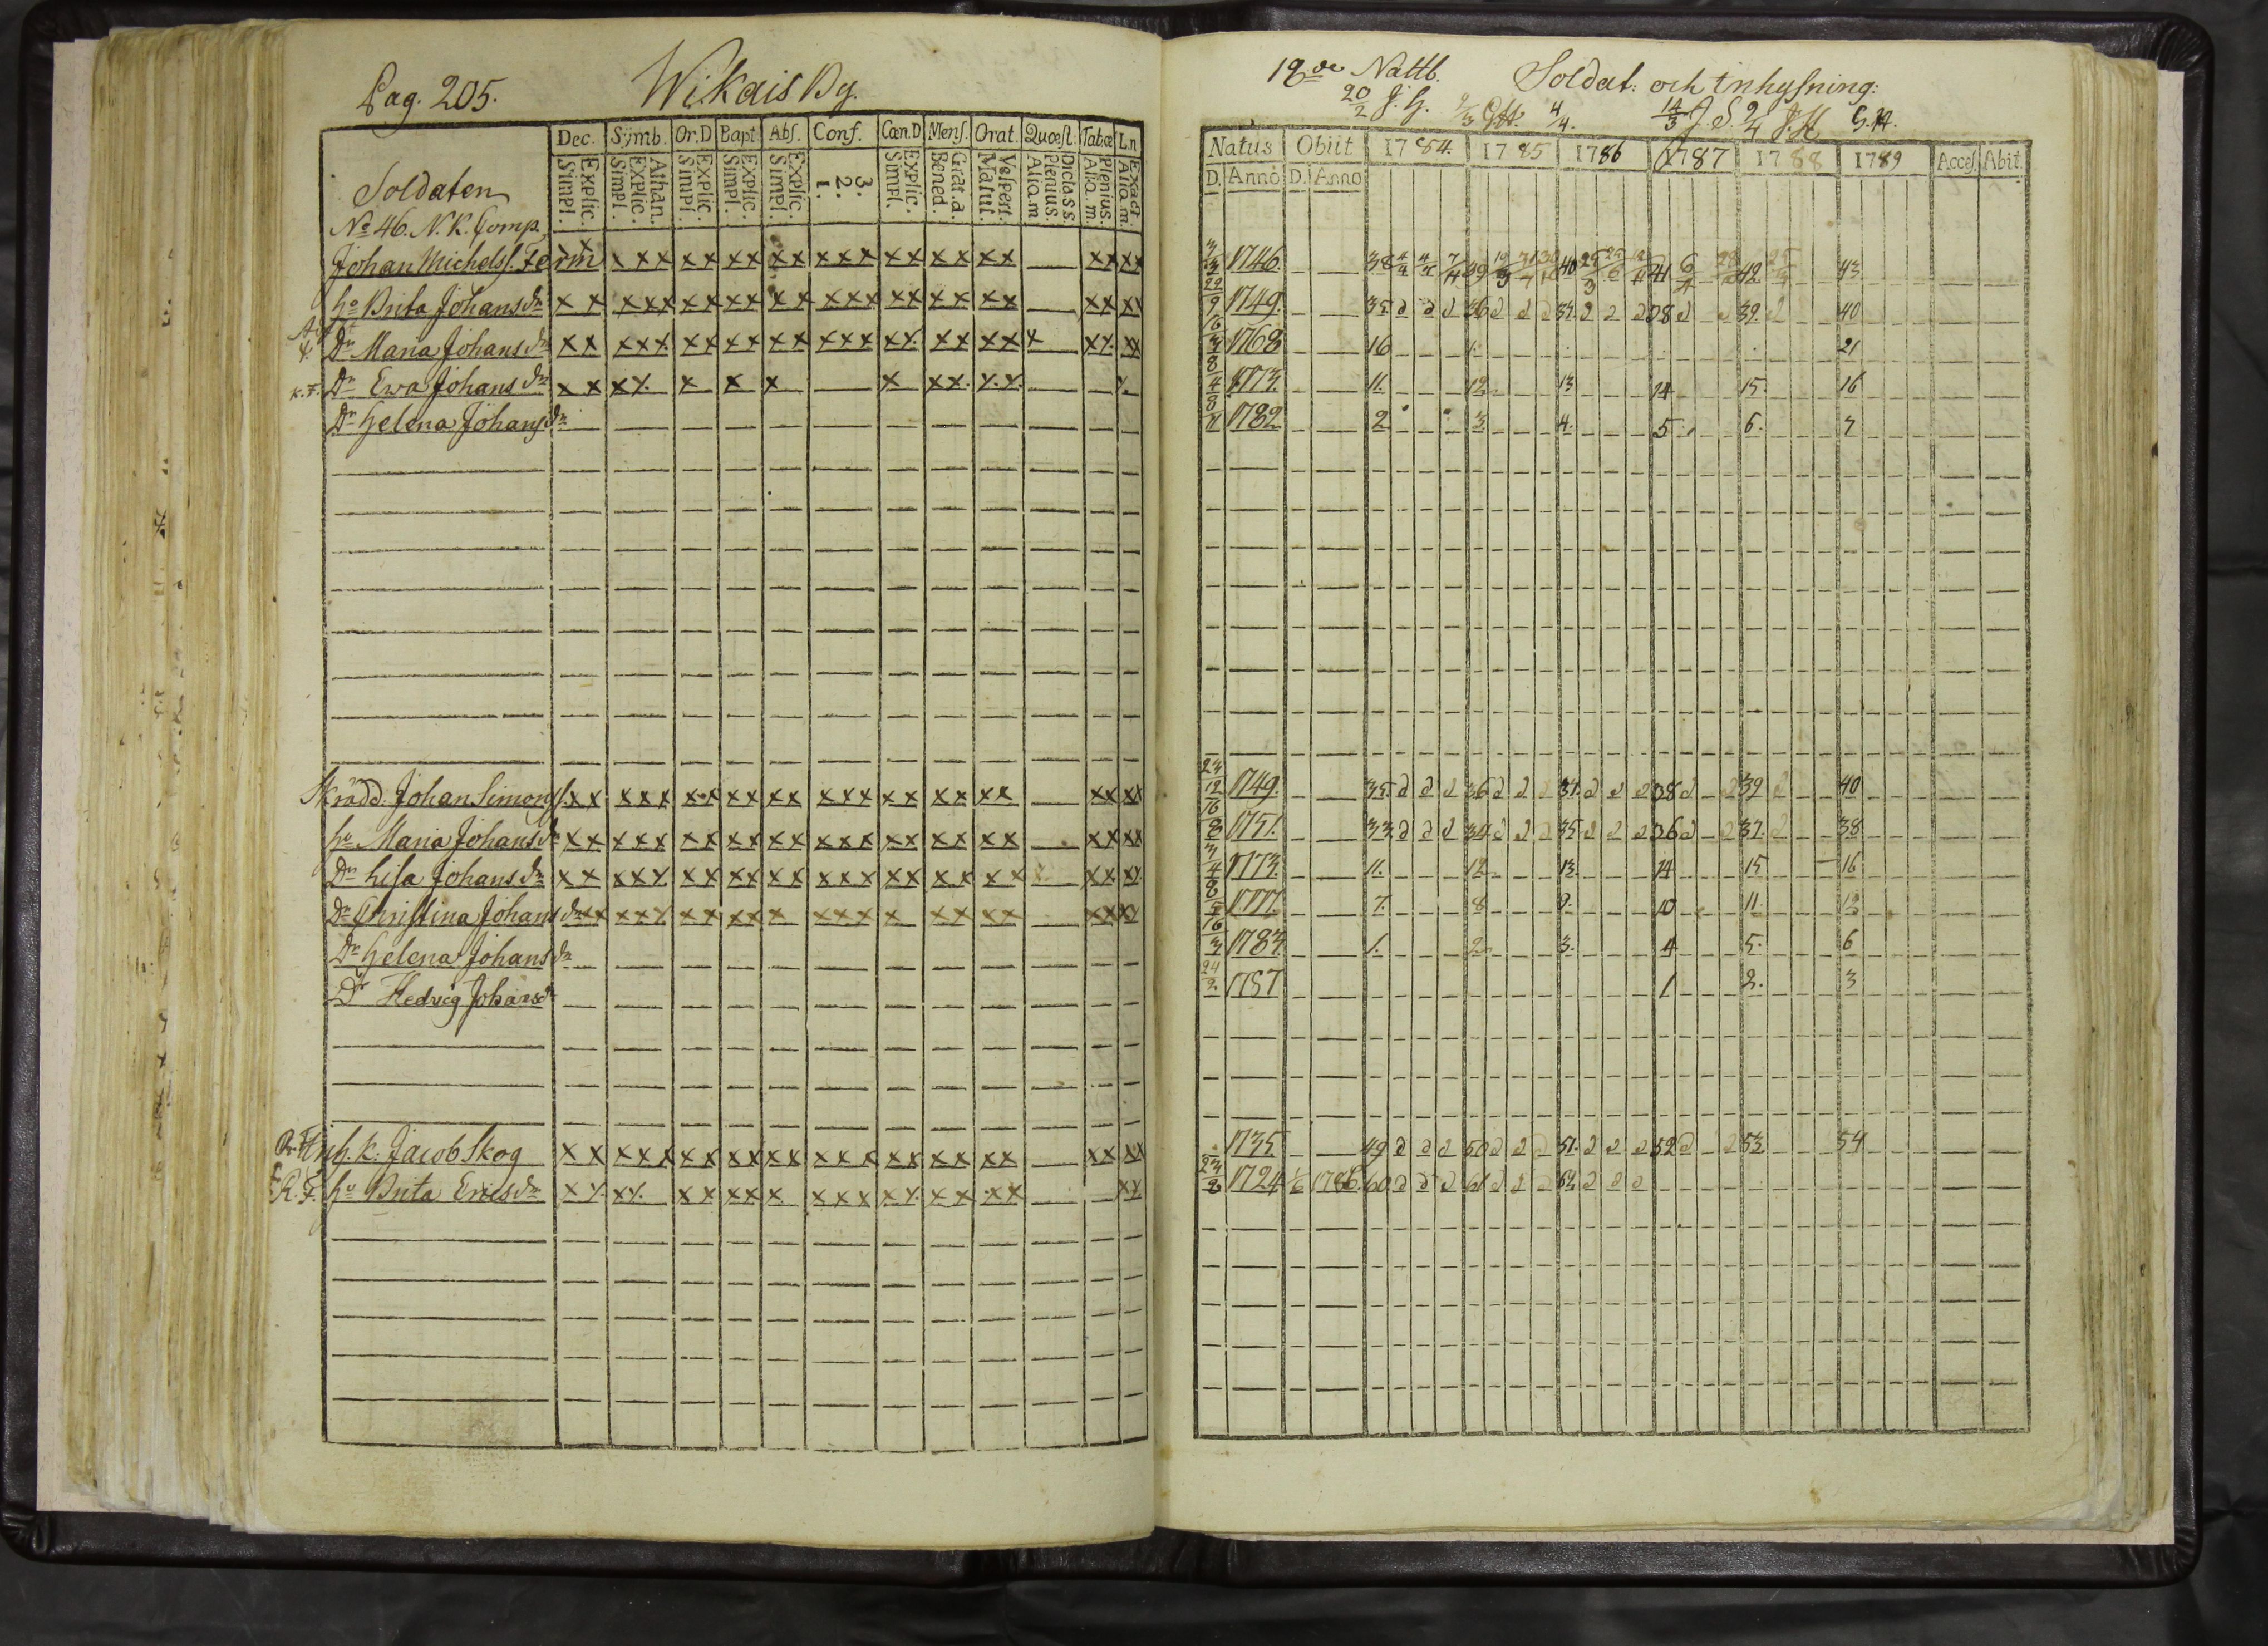 Pag. 205. Wikais By.
Dec. Symb. Or.D Bapt. Abs. Conf. Cœn.D Mens. Orat. Quæst. Tab.œ L.n
Explic. Simpl. Athan. Explic. Simpl. Explic. Simpl. Explic. Simpl. Explic. Simpl. 3. 2. 1. Explic. Simpl. Grat.a. Bened. Vespert. Matut. Dicta s.s. Plenius. Aliq.m Plenius. Aliq.m. Exact. Aliq.m.
Soldaten
No 46. N. K. Comp.
Johan Michelss. Ferm x x x x x x x x x x x x x x x x x x x x x
ho Brita Johansdr x x x x x x x x x x x x x x x x x x x x x x x
Dr Maria Johansdr x x x x x x x x x x x x x x x x x x x x x x x x
K. F. Dr Ewa Johansdr x x x x x x x x x x x x x
Dr Helena Johansdr
Skrädd. Johan Simonss. x x x x x x x x x x x x x x x x x x x x x x x
ho Maria Johansdr x x x x x x x x x x x x x x x x x x x x x x x
Dr Lisa Johansdr x x x x x x x x x x x x x x x x x x x x x x x
Dr Christina Johansdr x x x x x x x x x x x x x x x x x x x x x
Dr Helena Johansdr
Dr Hedvig Johansdr
Inh. K. Jacob Skog x x x x x x x x x x x x x x x x x x x x x x x
R. F. ho Brita Ericsdr x x x x x x x x x x x x x x x x x x x x
12de Nattb. Soldat: och Inhysning:
20/2 J. G. 2/3 4/4. 14/3 J. S. 2/4 J. H G. H.
Natus Obiit 1784 1785 1786 1787 1788 1789 Access. Abit.
D. Anno D. Anno
1746. 38 39 40 41 42 43
22/9 1749. 35 2 2 2 36 2 2 2 37 2 2 2 38 2 2 39 2 40
1768 16 21
8/4 1773. 11. 12 13 14 15. 16
1782 2 3 4. 5. 6. 7
23/12 1749. 35. 2 2 2 36 2 2 2 37. 2 2 2 38 2 2 39 2 40
16/8 1751. 33 2 2 2 34 2 2 2 35 2 2 2 36 2 2 37. 2 38
3/4 1773. 11. 12 13 14 15 16
1777. 7. 8 9. 10 11. 12
16/3 1783. 1. 2 3. 4 5. 6
24/2 1787 1 2. 3
1735 49 2 2 2 50 2 2 2 51. 2 2 2 52 2 2 53 54
23/8 1724 1/6 1786. 60 2 2 2 61 2 2 2 62 2 2 2